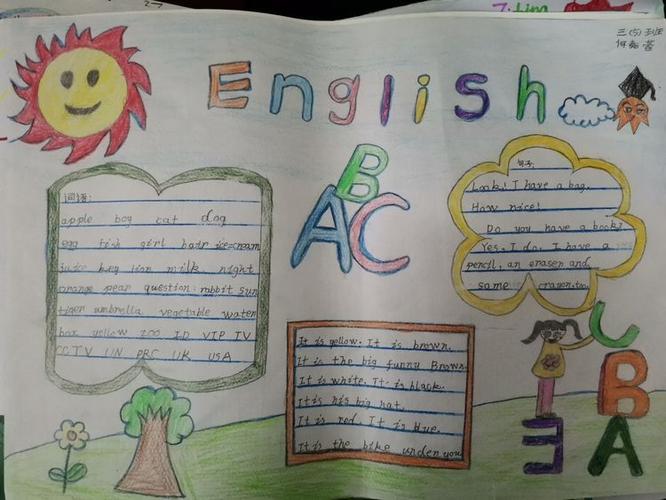 7: tim
三(5)班
English
B
AC
词语:
apple boy cat dog
egg fish girl hair ice-cream
juice key lion milk night
orange pear question rabbit sun
tiger umbrella vegetable water
box yellow zoo ID VIP TV
CCTV UN PRC UK USA
句子:
Look! I have a bag.
How nice!
Do you have a book?
Yes, I do. I have a
pencil, an eraser and
some crayon, too.
It is yellow. It is brown.
It is the big funny Brown.
It is white. It is black.
It is his big hat.
It is red. It is blue.
It is the bike under you
C
B
A